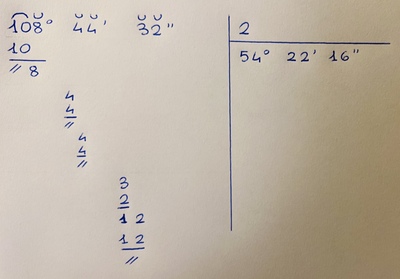 108° 44' 32" 2
10 54° 22' 16"
" 8
4
4
"
4
4
"
3
2
1 2
1 2
"